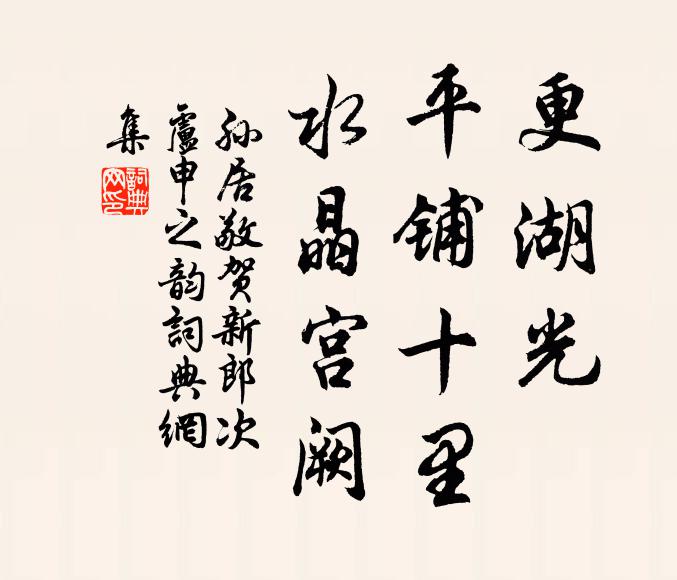 更湖光
平铺十里
水晶宫阙
孙居敬贺新郎次
盧申之韵詞典網
集
詞典
网印